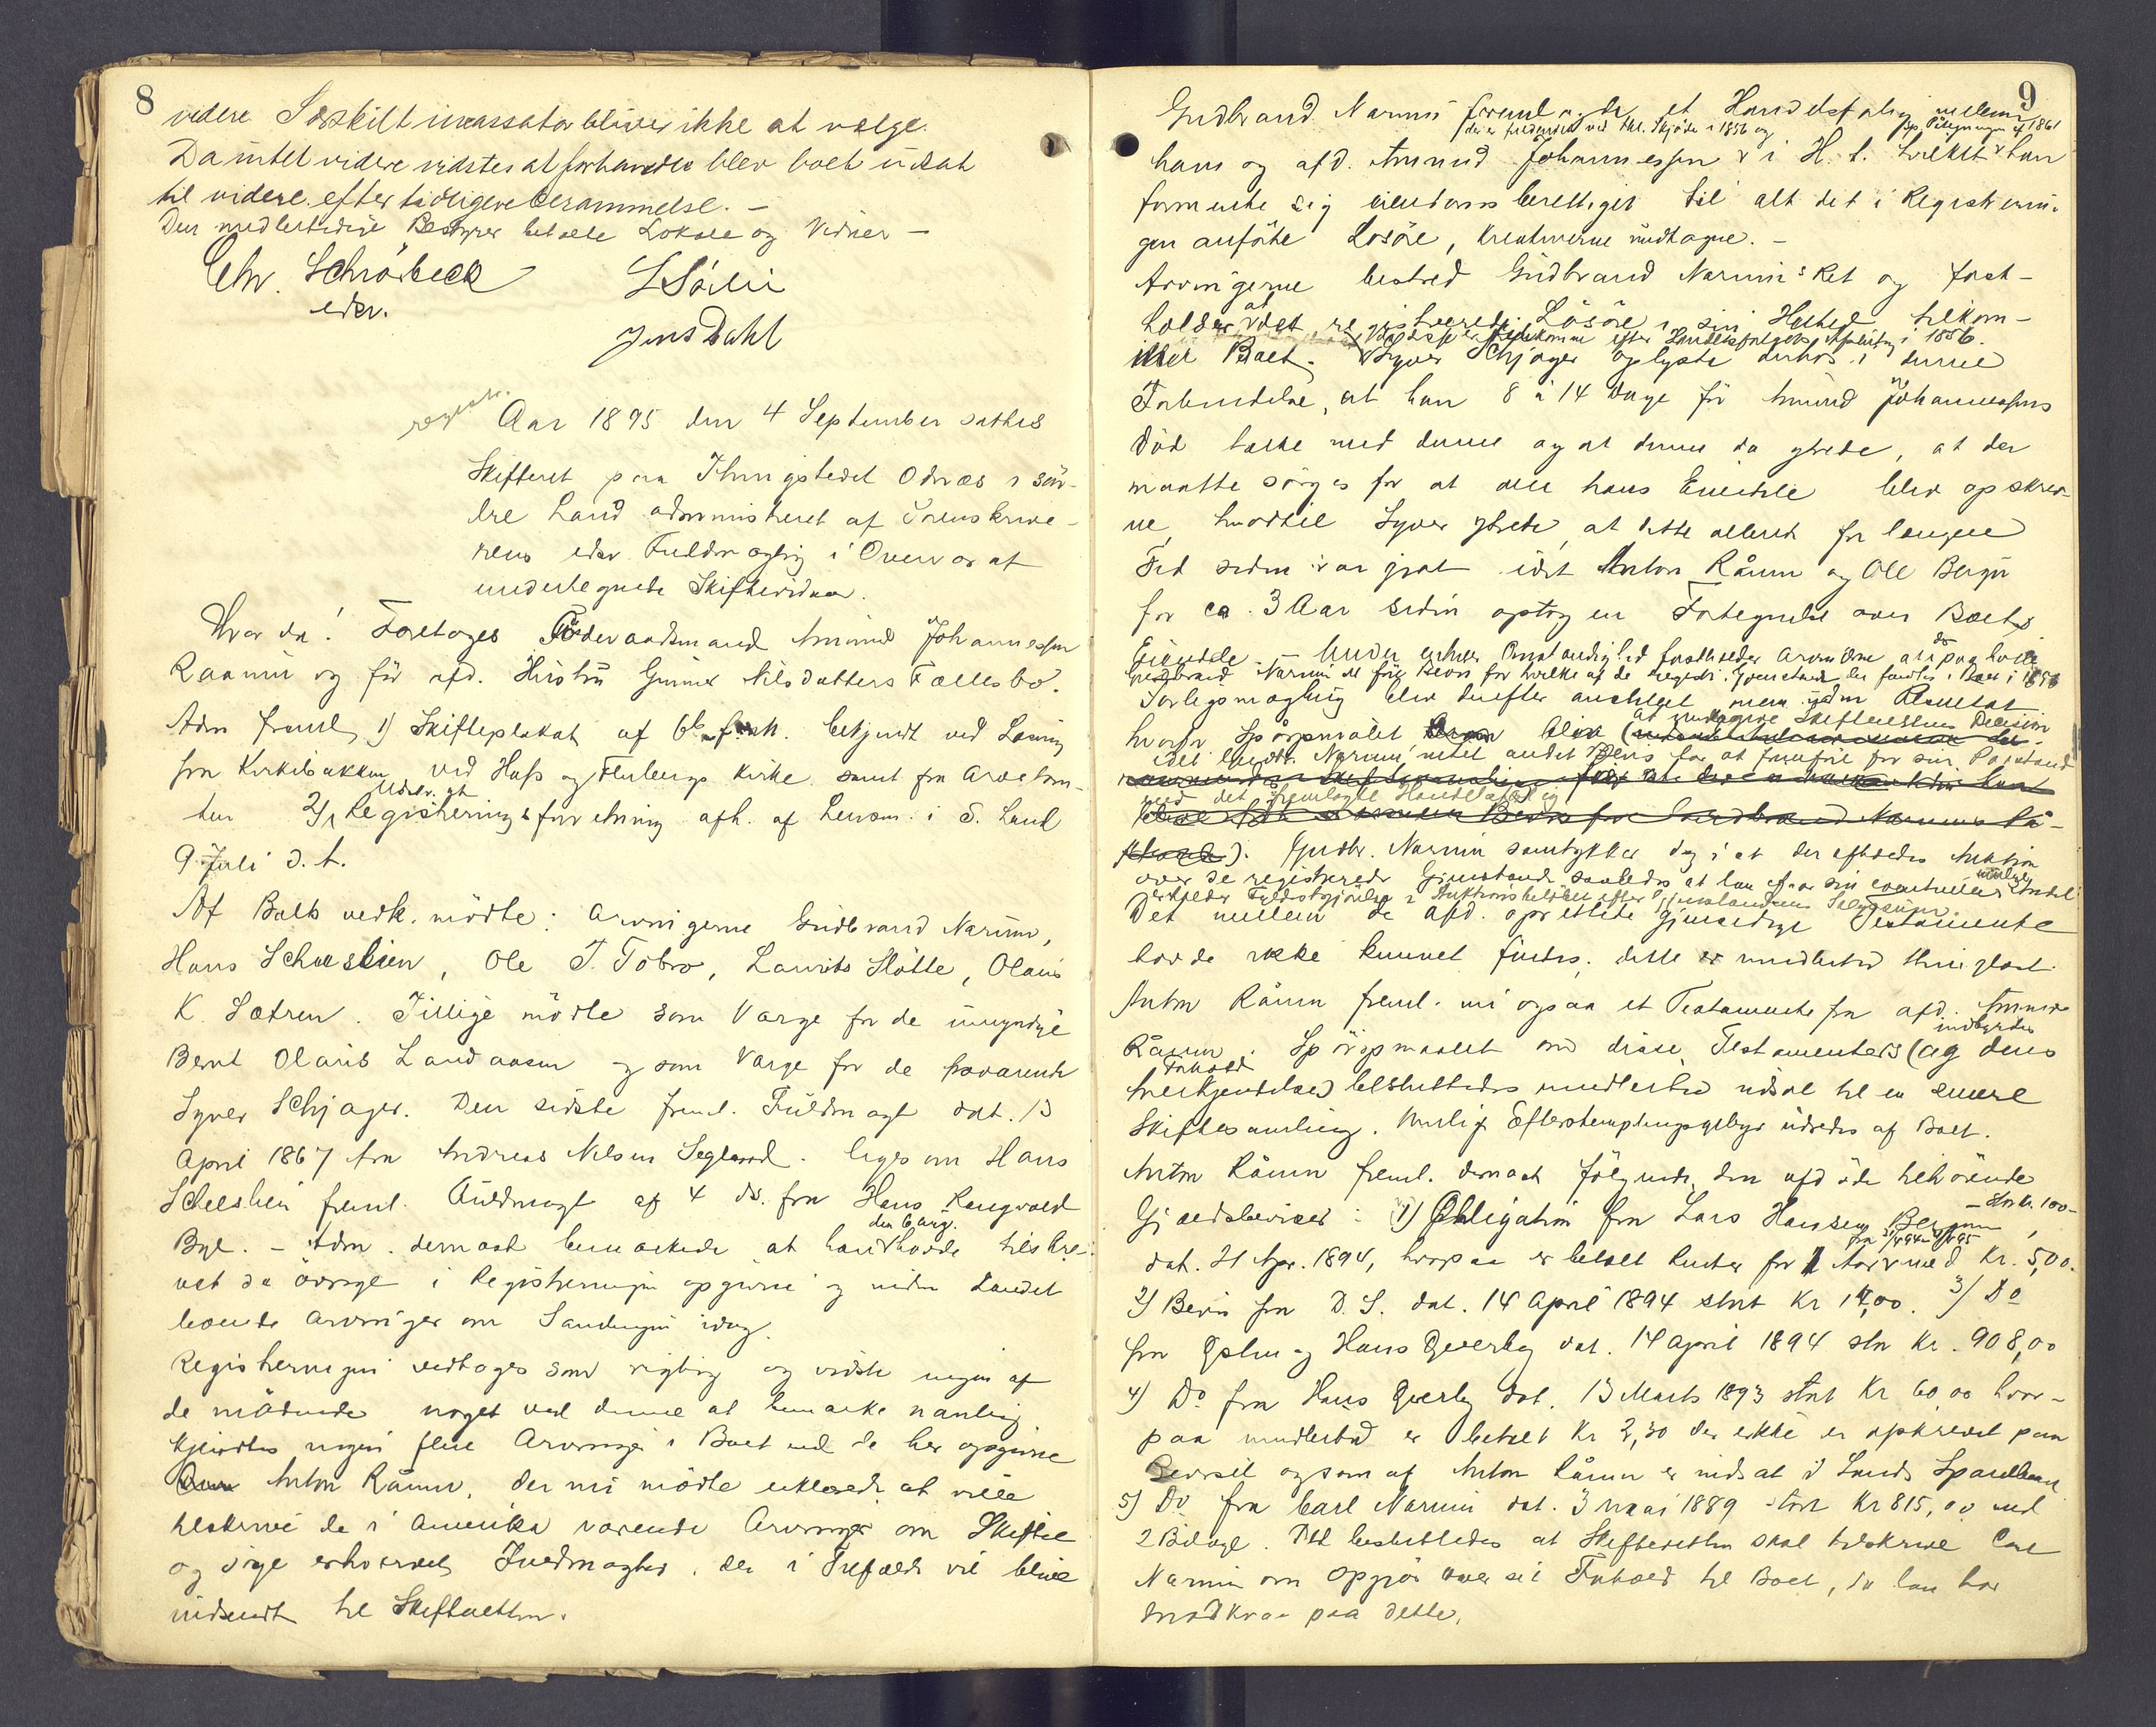 8
videre Særskilt incassator bliver ikke at vælge.
Da intet videre vidstes at forhandle blev boet udsat
til videre efter tidligere berammelse. –
Den midlertidige Bestyrer betalte Lokale og Vidner –
Chr. Schröbeck
edsv.
L Sölie
Jens Dahl
registr.
Aar 1895 den 4 September sattes
Skifteret paa Thingstedet Odnæs i sön-
dre Land administreret af Sorenskrive-
rens edsv Fuldmægtig i Overvær af
undertegnede Skiftevidner.
Hvor da! Foretoges Föderaadsmand Amund Johannessen
Raanum og för afd. Hustru Gunner Nilsdatters Fællesbo.
Adm freml. 1) Skifteplakat af 6te bekjendt ved Læsning
fra Kirkebakken ved Hofs og Fluberg Kirke samt fra Arvetom-
ten 2) Udskr. af Registreringsforretning afh. af Lensm. i S. Land
9 Juli d. A.
Af Boets vedk. mödte: Arvingerne Gudbrand Narum,
Hans Scheeslien, Ole J. Tobro, Laurits Slötte, Olaus
K. Sætren. Tillige mödte som Værge for de umyndige
Bernt Olaus Landaasen og som Værge for de fraværende
Syver Schjager. Den sidste freml. Fuldmagt dat. 13
April 1867 fra Andreas Nilsen Segland. ligesom Hans
Scheeslien freml. Fuldmagt af 4 ds. fra Hans Rengvold
Bye. – Adm. dernæst bemærkede at han den 6 Aug. havde tilskre-
vet de övrige i Registreringen opgivne og inden Landet
boende Arvinger om Samlingen idag.
Registreringen vedtoges som rigtig og vidste ingen af
de mödende noget ved denne at bemærke nemlig
kjendtes ingen flere Arvinger i Boet end de her opgivne
Anton Rånum, der nu mödte erklærede at ville
tilskrive de i Amerika værende Arvinger om Skiftet
og söge erhvervet Fuldmagter, der i Tilfælde vil blive
indsendt til Skifteretten.
9
Gudbrand Narum fremlagde et Handelsforlig mellem
der er fuldendt ved thl. Skjöde i 1856 og jfr. Påtegningen af 1861
ham og afd. Amund Johannessen i H. t. hvilket han
formente sig eiendomsberettiget til alt det i Registrerin-
gen anförte Lösöre, Kreaturerne undtagne. –
Arvingerne bestred Gudbrand Narums Ret og fast-
holder at det registrerede Lösöre i sin Helhed tilkom-
mer Boet. Syver Schjager oplyste derhos i denne
Forbindelse, at han 8 à 14 Dage för Amund Johannessens
Död talte med denne og at denne da ytrede, at der
maatte sörges for at alle hans Eiendele blev opskrev-
ne, hvortil Syver ytrede, at dette allerede for længere
Tid siden var gjort idet Anton Rånum og Ole Bergn
for ca. 3 Aar siden optog en Fortegnelse over Boets
Eiendele – Under enhver Omstændighed fastholder Arvingerne at det paahviler
Gudbrand Narum at före Bevis for hvilke af de registr. Gjenstande der fandtes i Boet i 1856
Forligsmægling blev derefter anstillet men uden Resultat
hvorfor Spörgsmålet blev (at undergive Skifterettens Decision
idet Gudbr. Narum intet andet Bevis har at fremföre for sin Paastand
end det fremlagte Handelsforlig
). Gudbr. Narum samtykker dog i at der afholdes Auktion
over de registrerede Gjenstande saaledes at han for sin eventuelle Andel
erholder Fyldestgjörelse i Auktionsbelöbet efter Gjenstandens Salgssum.
Det mellem de afd. oprettede gjensidige Testamente
havde ikke kunnet findes; dette er imidlertid thinglæst.
Anton Rånum freml. nu ogsaa et Testamente fra afd. Amund
Rånum. Spörgsmaalet om disse Testamenters (og deres indbyrdes Forhold
Anerkjendelse) besluttedes imidlertid udsat til en senere
Skiftesamling. Mulig Efterstemplingsgebyr udredes af Boet.
Anton Rånum freml. dernæst fölgende den afdöde tilhörende
Gjældsbeviser: 1) Obligation fra Lars Hansen Bergum – stor kr. 100 –,
dat. 21 Apr. 1894, hvorpaa er betalt Renter for 1 Aar med Kr. 5,00.
2) Bevis fra D. S. dat. 14 April 1894 stort Kr 14,00. 3) Do
fra Golm og Hans Qverly dat. 14 April 1894 stor Kr. 908,00
4) Do fra Hans Qverly dat. 13 Marts 1893 stort Kr 60,00 hvor-
paa imidlertid er betalt Kr 2,30 der ikke er afskrevet paa
Beviset og som af Anton Rånum er indsat i Lands Sparebank
5) Do fra Carl Narum dat. 3 Mai 1889 stort Kr 815,00 med
2 Bilage. Det besluttedes at Skifteretten skal tilskrive Carl
Narum om Opgjör over sit Forhold til Boet, da han har
Modkrav paa dette.